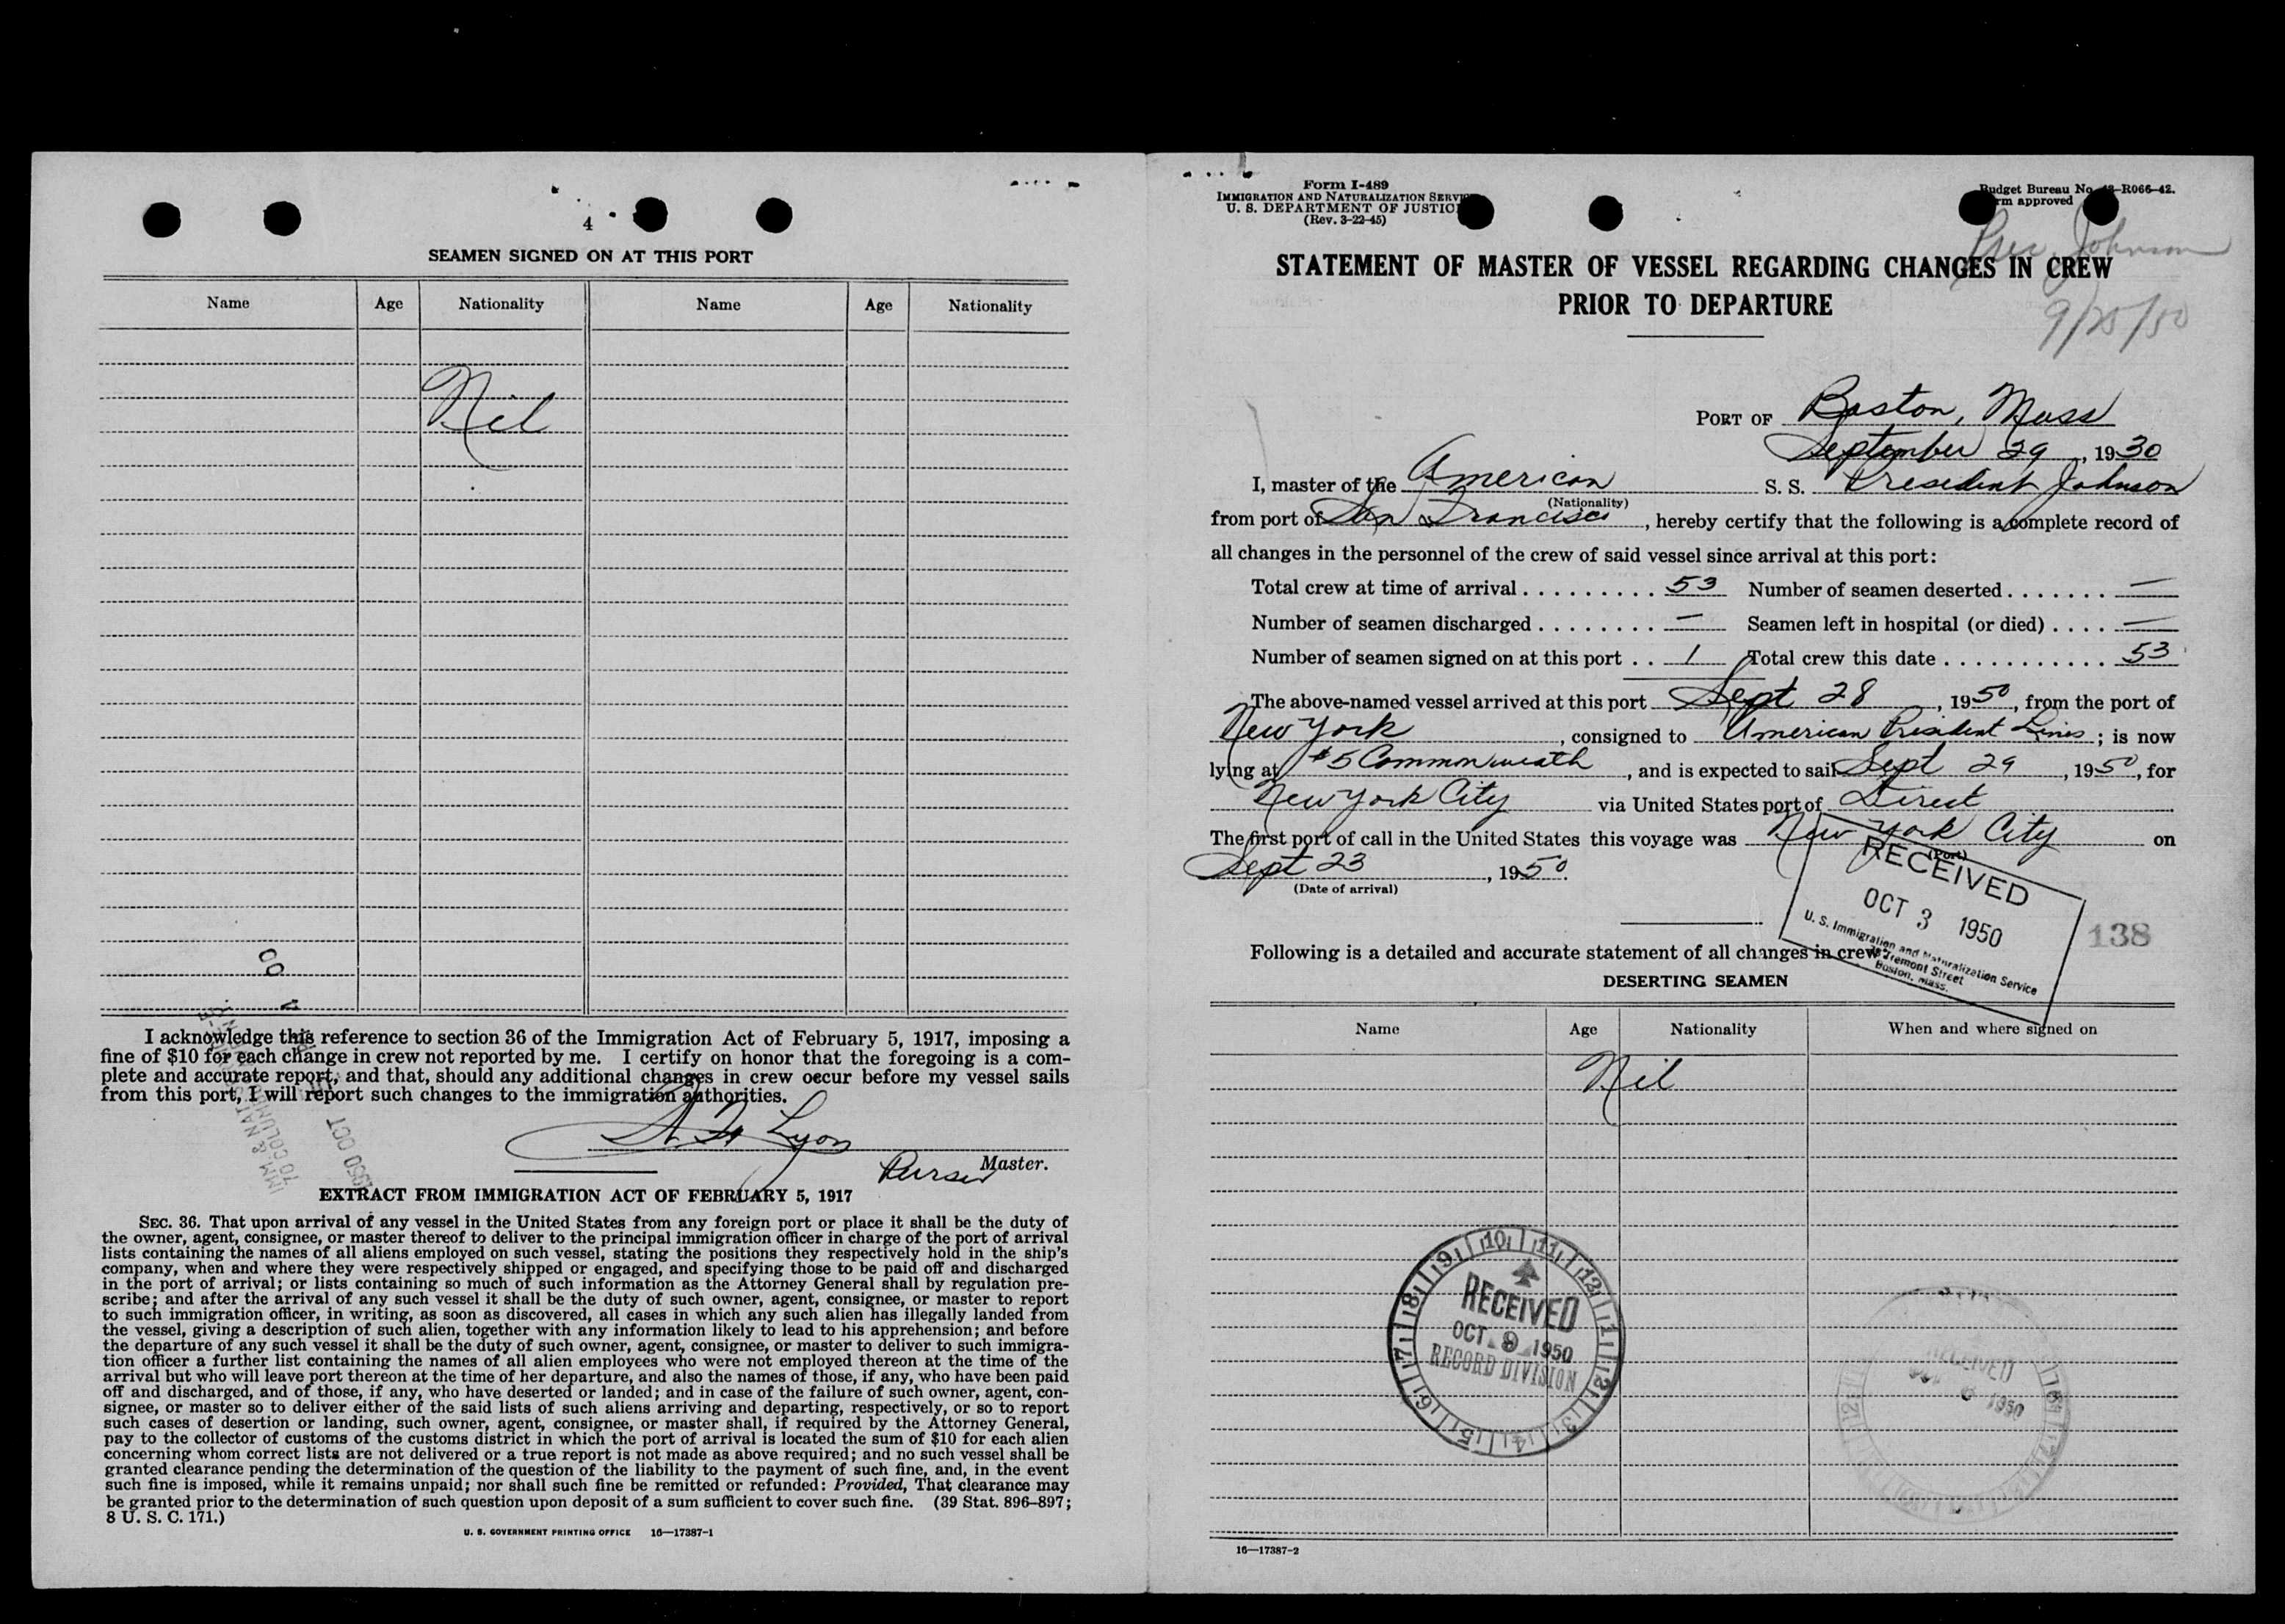 4
SEAMEN SIGNED ON AT THIS PORT
Name Age Nationality Name Age Nationality
Nil
I acknowledge this reference to section 36 of the Immigration Act of February 5, 1917, imposing a
fine of $10 for each change in crew not reported by me. I certify on honor that the foregoing is a com-
plete and accurate report, and that, should any additional changes in crew occur before my vessel sails
from this port, I will report such changes to the immigration authorities.
Lyon
Purser Master.
1950 OCT
EXTRACT FROM IMMIGRATION ACT OF FEBRUARY 5, 1917
SEC. 36. That upon arrival of any vessel in the United States from any foreign port or place it shall be the duty of
the owner, agent, consignee, or master thereof to deliver to the principal immigration officer in charge of the port of arrival
lists containing the names of all aliens employed on such vessel, stating the positions they respectively hold in the ship's
company, when and where they were respectively shipped or engaged, and specifying those to be paid off and discharged
in the port of arrival; or lists containing so much of such information as the Attorney General shall by regulation pre-
scribe; and after the arrival of any such vessel it shall be the duty of such owner, agent, consignee, or master to report
to such immigration officer, in writing, as soon as discovered, all cases in which any such alien has illegally landed from
the vessel, giving a description of such alien, together with any information likely to lead to his apprehension; and before
the departure of any such vessel it shall be the duty of such owner, agent, consignee, or master to deliver to such immigra-
tion officer a further list containing the names of all alien employees who were not employed thereon at the time of the
arrival but who will leave port thereon at the time of her departure, and also the names of those, if any, who have been paid
off and discharged, and of those, if any, who have deserted or landed; and in case of the failure of such owner, agent, con-
signee, or master so to deliver either of the said lists of such aliens arriving and departing, respectively, or so to report
such cases of desertion or landing, such owner, agent, consignee, or master shall, if required by the Attorney General,
pay to the collector of customs of the customs district in which the port of arrival is located the sum of $10 for each alien
concerning whom correct lists are not delivered or a true report is not made as above required; and no such vessel shall be
granted clearance pending the determination of the question of the liability to the payment of such fine, and, in the event
such fine is imposed, while it remains unpaid; nor shall such fine be remitted or refunded: Provided, That clearance may
be granted prior to the determination of such question upon deposit of a sum sufficient to cover such fine. (39 Stat. 896–897;
8 U. S. C. 171.)
U. S. GOVERNMENT PRINTING OFFICE 16—17387-1
Form I-489
IMMIGRATION AND NATURALIZATION SERVICE
U. S. DEPARTMENT OF JUSTICE
(Rev. 3-22-45)
Budget Bureau No. -R066-42.
approved
Pres Johnson
9/25/50
STATEMENT OF MASTER OF VESSEL REGARDING CHANGES IN CREW
PRIOR TO DEPARTURE
PORT OF Boston, Mass
September 29, 1930
I, master of the American S. S. President Johnson
(Nationality)
from port of San Francisco, hereby certify that the following is a complete record of
all changes in the personnel of the crew of said vessel since arrival at this port:
Total crew at time of arrival . . . . . . . . . 53 Number of seamen deserted . . . . . . . —
Number of seamen discharged . . . . . . . . — Seamen left in hospital (or died) . . . . —
Number of seamen signed on at this port . . 1 Total crew this date . . . . . . . . . . . 53
The above-named vessel arrived at this port Sept 28, 1950, from the port of
New York, consigned to American President Lines; is now
lying at #5 Commonweath, and is expected to sail Sept 29, 1950, for
New York City via United States port of Direct
The first port of call in the United States this voyage was New York City on
(Port)
Sept 23, 1950.
(Date of arrival)
RECEIVED
OCT 3 1950
U. S. Immigration and Naturalization Service
Tremont Street
Boston, Mass.
138
Following is a detailed and accurate statement of all changes in crew:
DESERTING SEAMEN
Name Age Nationality When and where signed on
Nil
RECEIVED
OCT 9 1950
RECORD DIVISION
RECEIVED
6 1950
16—17387-2